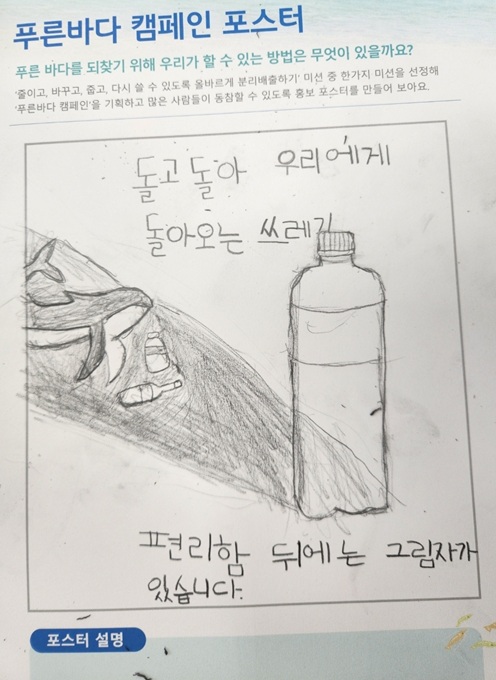 푸른바다 캠페인 포스터
푸른 바다를 되찾기 위해 우리가 할 수 있는 방법은 무엇이 있을까요?
'줄이고, 바꾸고, 줍고, 다시 쓸 수 있도록 올바르게 분리배출하기' 미션 중 한가지 미션을 선정해
'푸른바다 캠페인'을 기획하고 많은 사람들이 동참할 수 있도록 홍보 포스터를 만들어 보아요.
돌고 돌아 우리에게
돌아오는 쓰레기
편리함 뒤에는 그림자가
있습니다.
포스터 설명